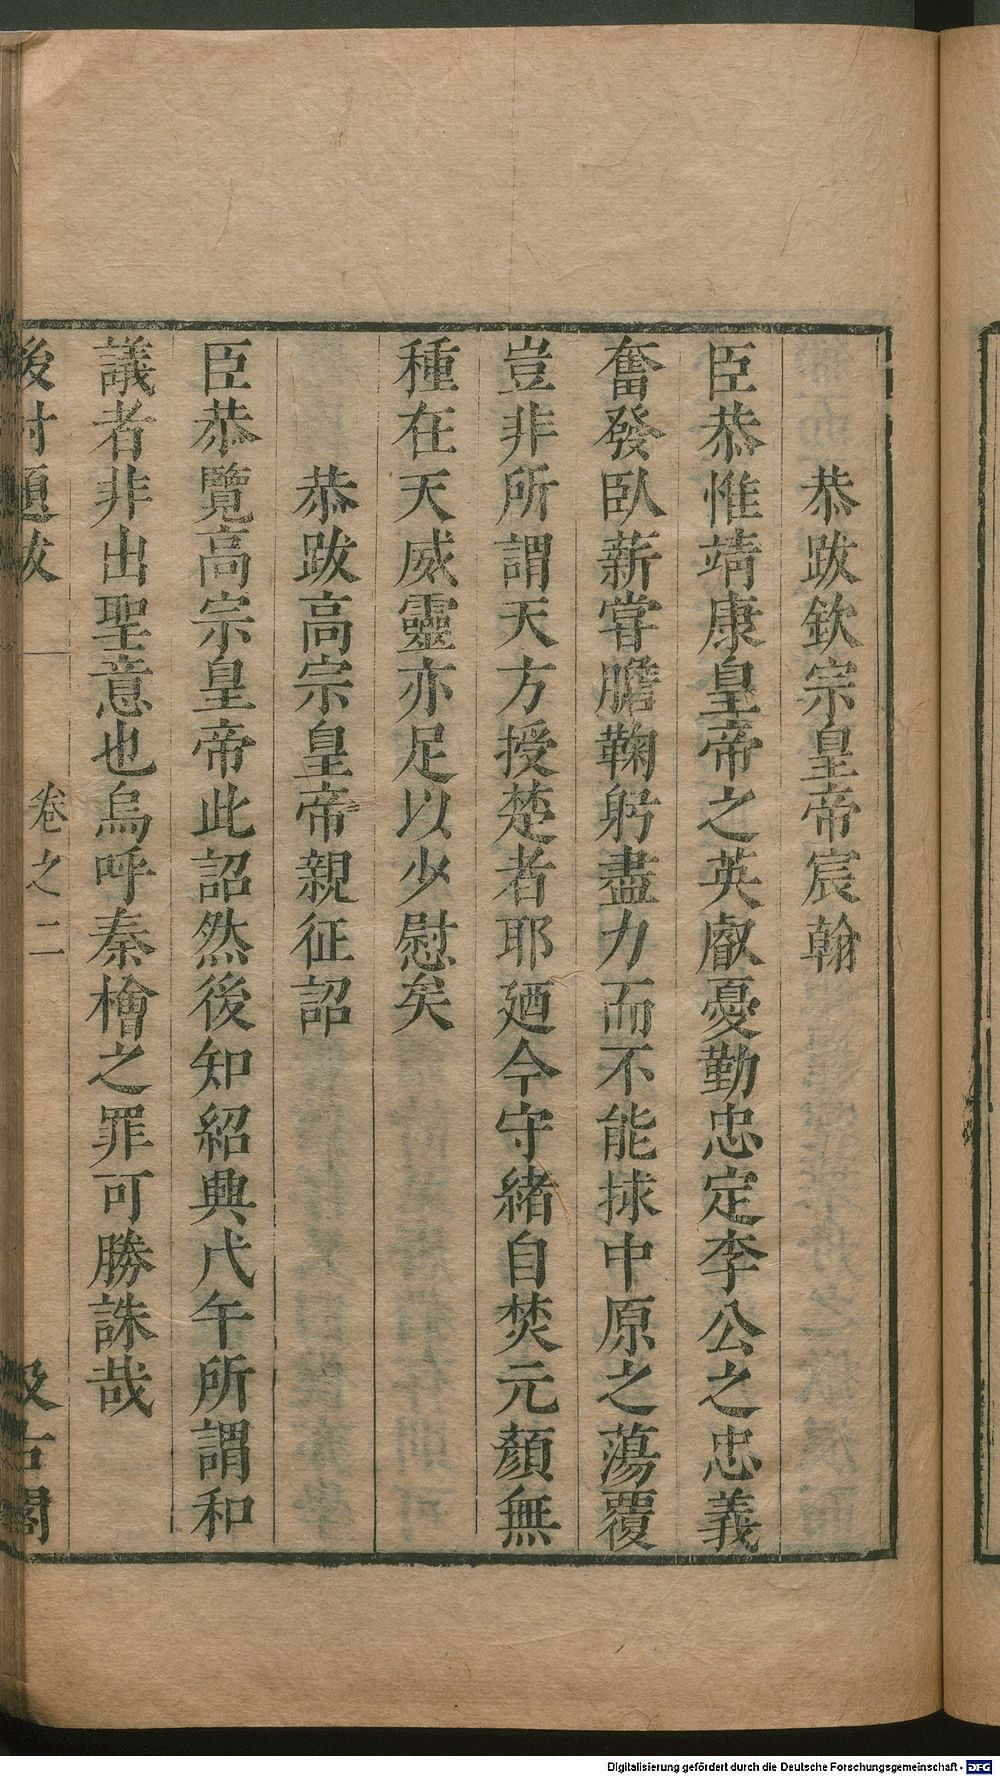 恭跋欽宗皇帝宸翰
臣恭惟靖康皇帝之英叡憂勤忠定李公之忠義
奮發臥薪嘗膽鞠躬盡力而不能捄中原之蕩覆
豈非所謂天方授楚者耶廼今守緒自焚元顏無
種在天威靈亦足以少慰矣
恭跋高宗皇帝親征詔
臣恭覽高宗皇帝此詔然後知紹興戊午所謂和
議者非出聖意也烏呼秦檜之罪可勝誅哉
後村題跋 卷之二 汲古閣
Digitalisierung gefördert durch die Deutsche Forschungsgemeinschaft - DFG